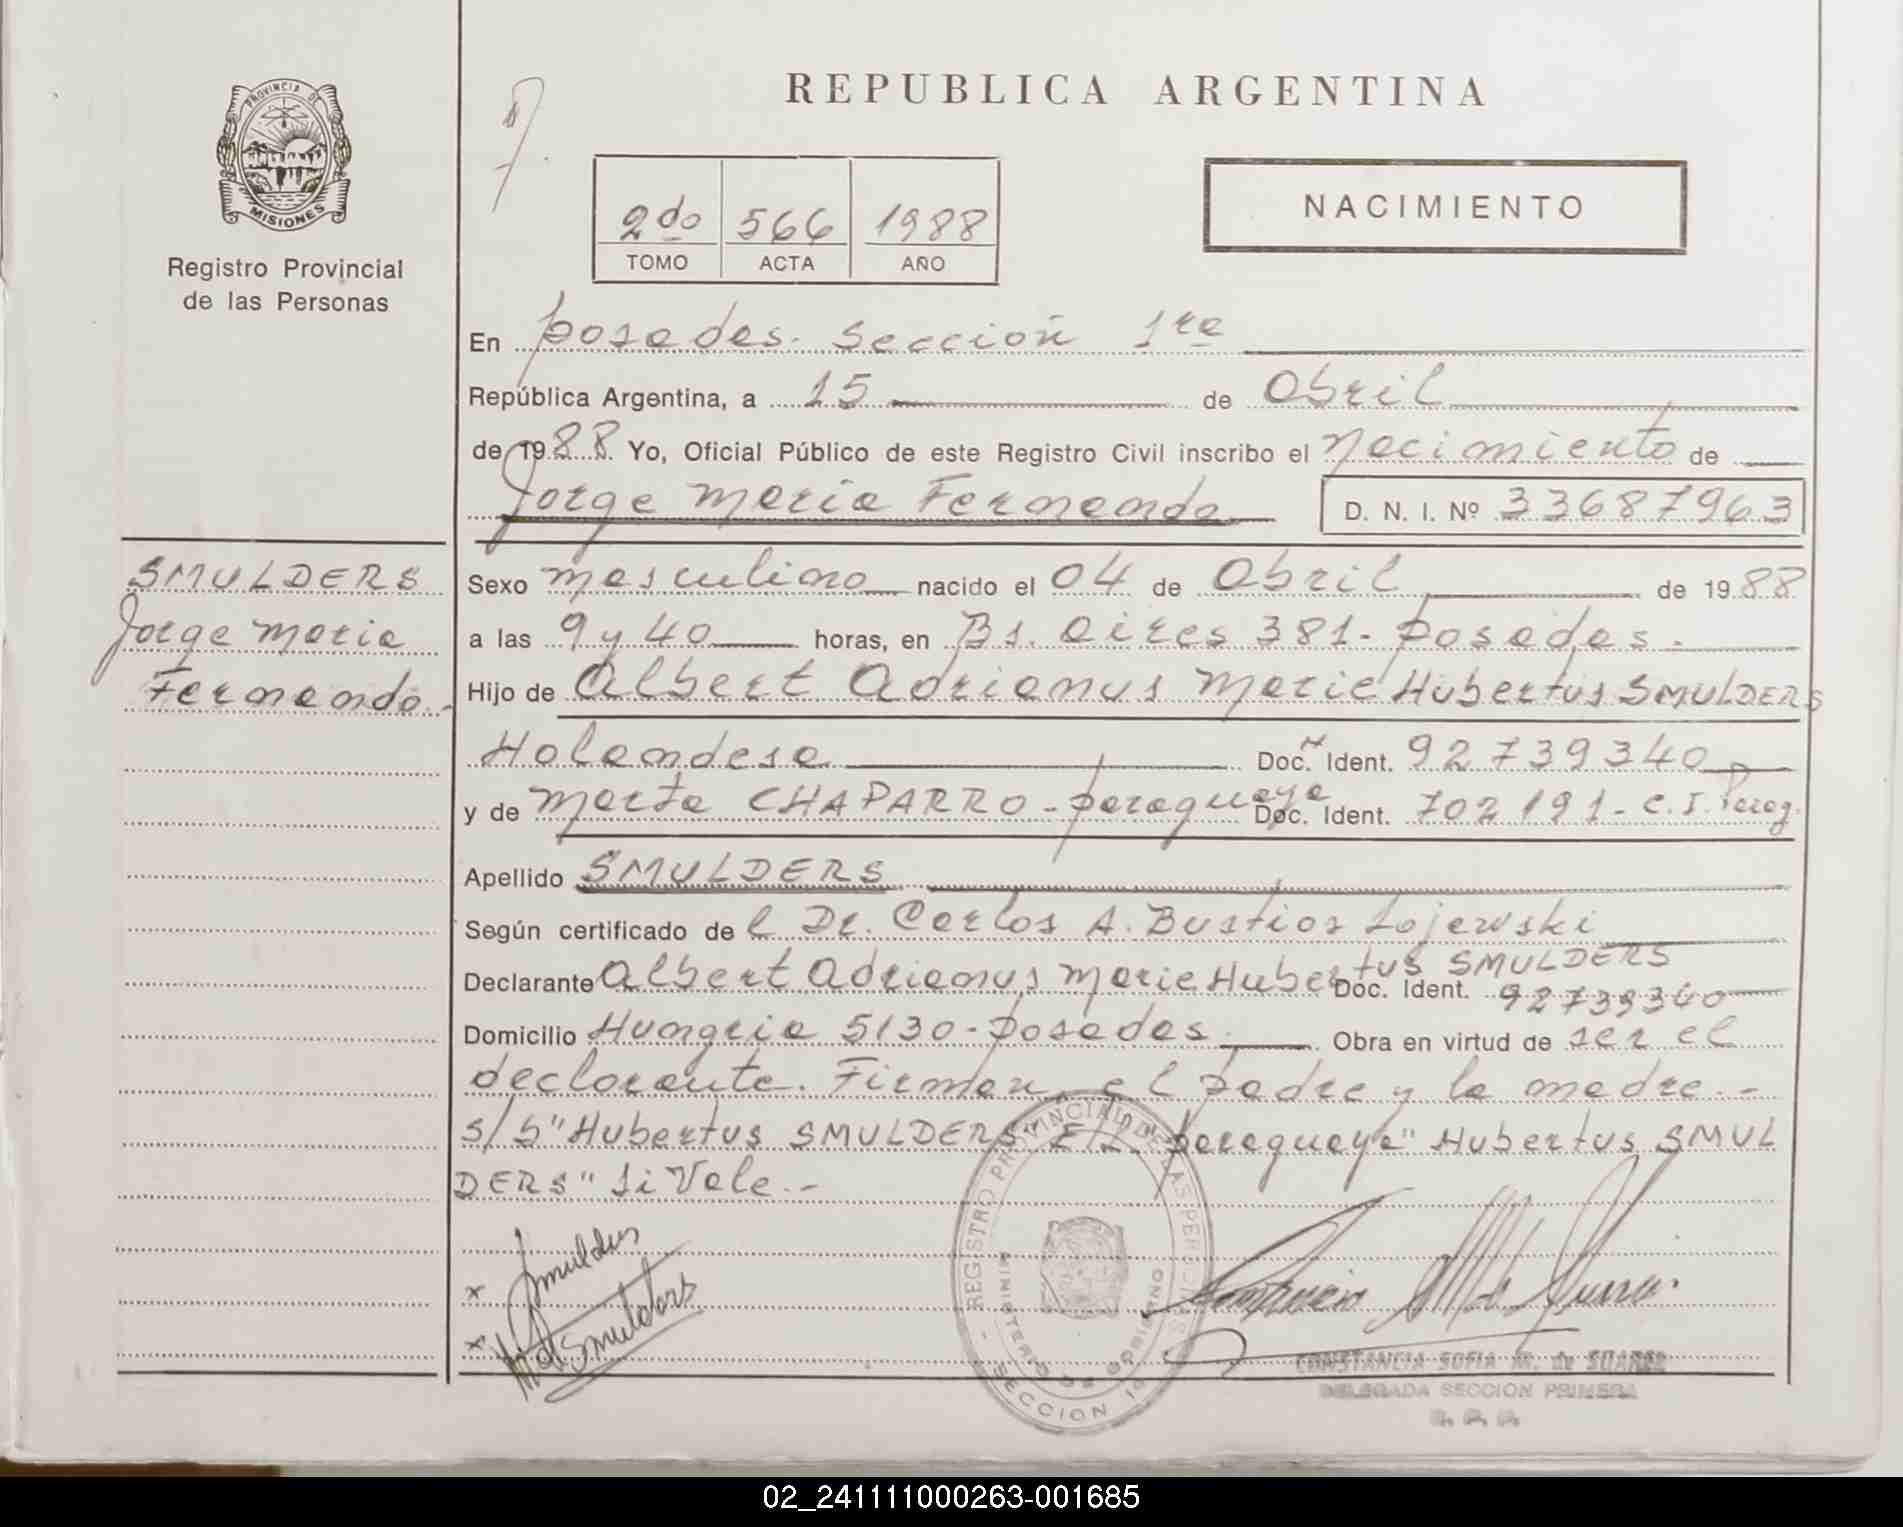 REPUBLICA ARGENTINA
PROVINCIA DE
MISIONES
Registro Provincial
de las Personas
2do 566 1988
TOMO ACTA AÑO
NACIMIENTO
En Posadas. Sección 1ra
República Argentina, a 15 de Abril
de 1988 Yo, Oficial Público de este Registro Civil inscribo el Nacimiento de
Jorge Maria Fernando D. N. I. Nº 33687963
SMULDERS
Jorge Maria
Fernando.-
Sexo masculino nacido el 04 de Abril de 1988
a las 9 y 40 horas, en Bs. Aires 381- Posadas.-
Hijo de Albert Adrianus Marie Hubertus SMULDERS
Holandesa Doc. Ident. 92739340
y de Marta CHAPARRO - paraguaya Doc. Ident. 702191- C.I. Parag.
Apellido SMULDERS
Según certificado de l Dr. Carlos A. Bustios Lojewski
Declarante Albert Adrianus Marie Hubertus SMULDERS Doc. Ident. 92739340
Domicilio Hungria 5130- Posadas. Obra en virtud de ser el
declarante. Firman el padre y la madre.-
s/b "Hubertus SMULDERS" E/L "paraguaya" Hubertus SMUL
DERS" Si Vale.-
x Smulders
x Smulders
REGISTRO PROVINCIAL DE LAS PERSONAS
MINISTERIO DE GOBIERNO
- SECCION 1a -
CONSTANCIA SOFIA M. de SUAREZ
DELEGADA SECCION PRIMERA
02_241111000263-001685